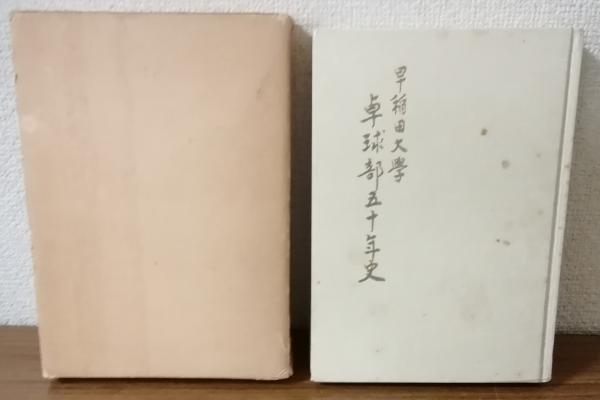 早稲田大學
卓球部五十年史